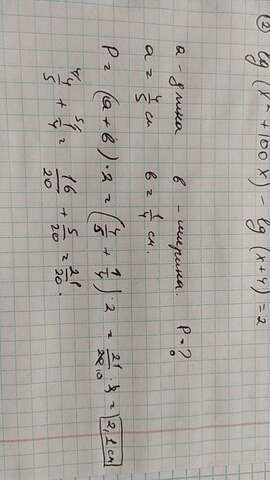 ② lg(x² + 100x) − lg(x+4) = 2
a – длина    b – ширина.    P = ?
a = 4/5 см    b = 1/4 см.
P = (a + b) · 2 = (4/5 + 1/4) · 2 = 21/20 10 · 2 = 2,1 см
4/5 ⁴ + 1/4 ⁵ = 16/20 + 5/20 = 21/20.